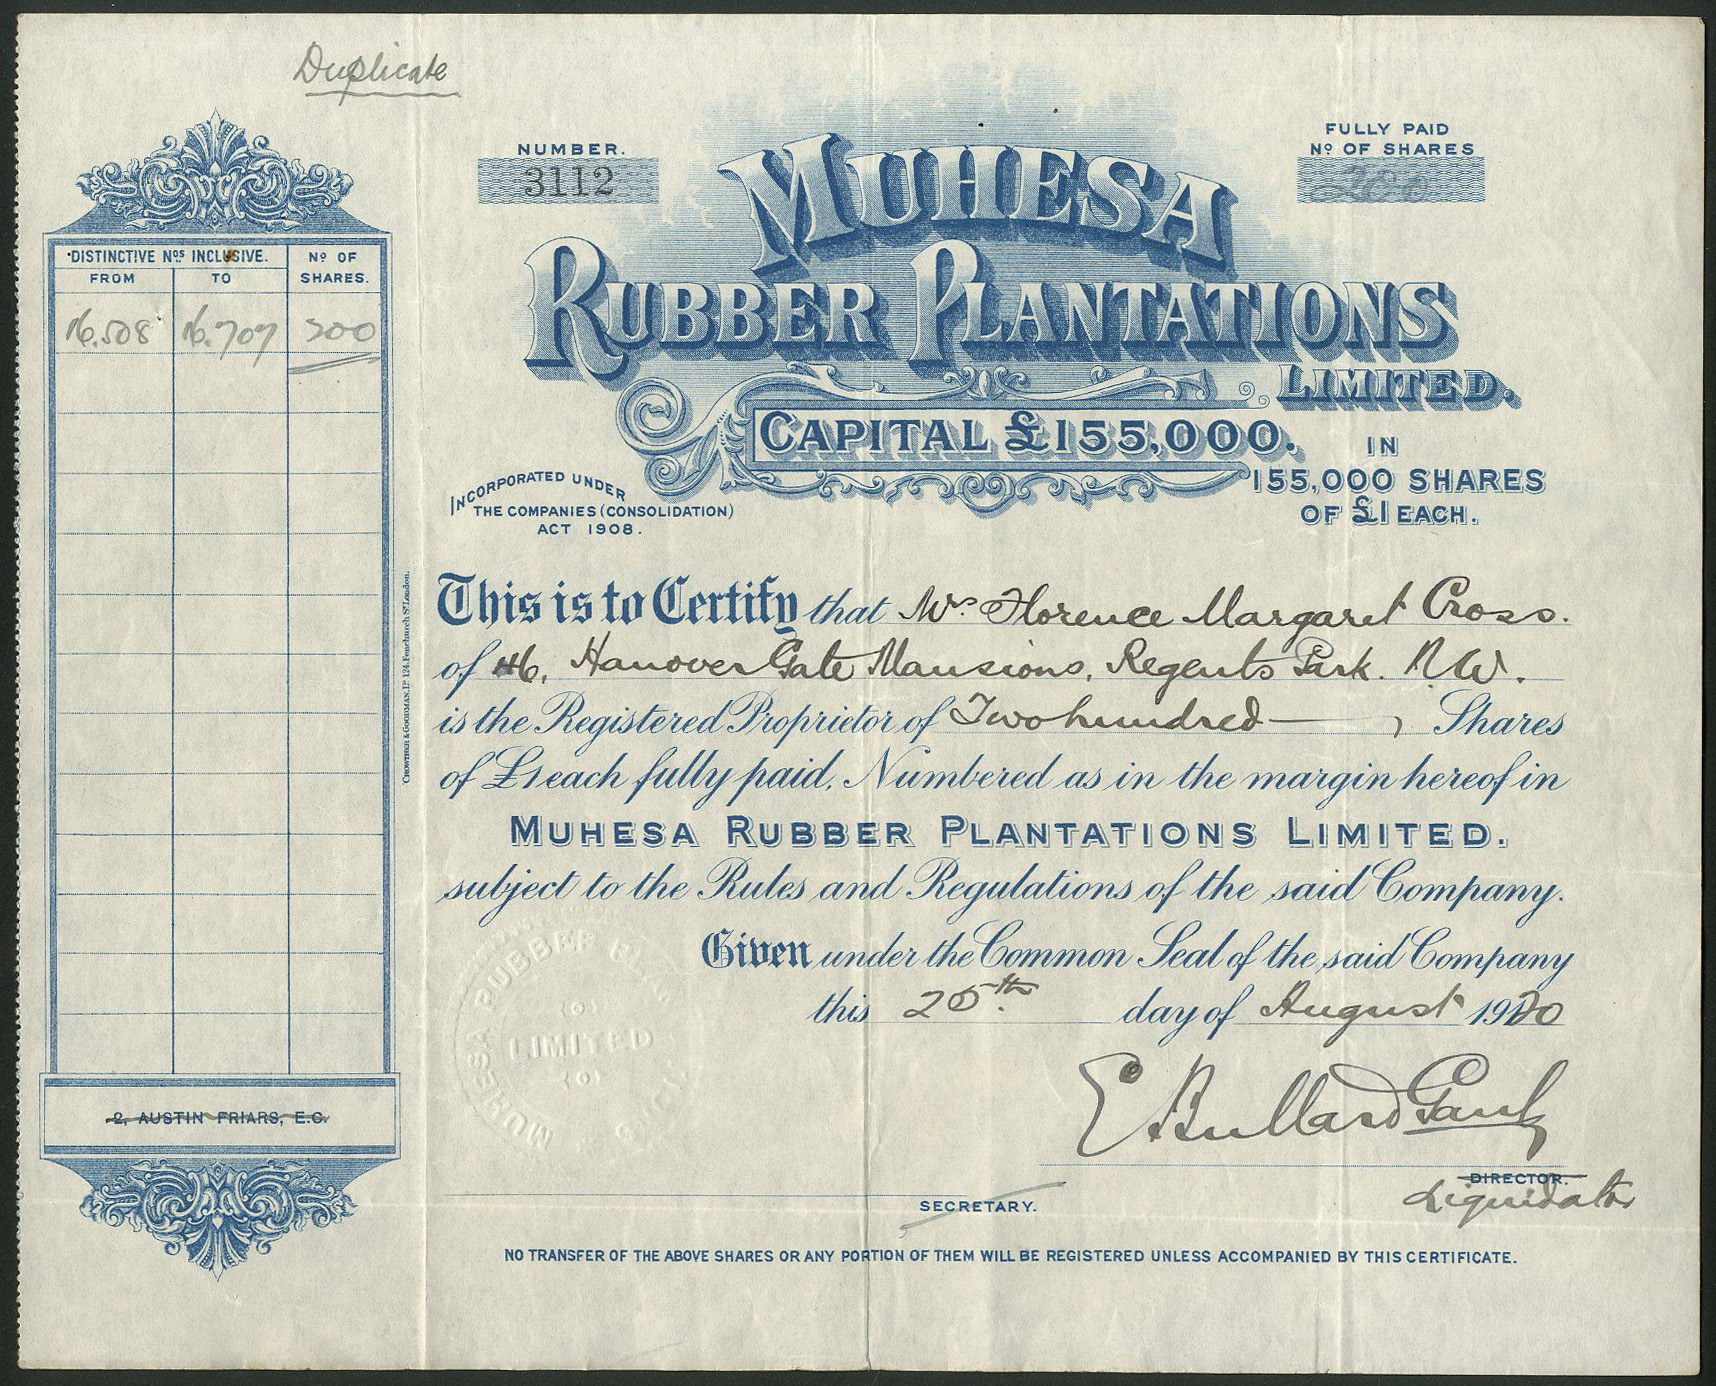 Duplicate
NUMBER.
3112
FULLY PAID
Nº OF SHARES
200
MUHESA
RUBBER PLANTATIONS
LIMITED.
CAPITAL £155,000.
IN
155,000 SHARES
OF £1 EACH.
INCORPORATED UNDER
THE COMPANIES (CONSOLIDATION)
ACT 1908.
DISTINCTIVE Nos INCLUSIVE.
FROM
TO
Nº OF
SHARES.
16.508
16.707
200
CROWTHER & GOODMAN, LD 124, Fenchurch St London.
This is to Certify that Mrs Florence Margaret Cross.
of 46, Hanover Gate Mansions, Regents Park. N.W.
is the Registered Proprietor of Two hundred — , Shares
of £1 each fully paid, Numbered as in the margin hereof in
MUHESA RUBBER PLANTATIONS LIMITED.
subject to the Rules and Regulations of the said Company.
Given under the Common Seal of the said Company
this 25th day of August 1920
MUHESA RUBBER
LIMITED
2, AUSTIN FRIARS, E.C.
E Bullard
DIRECTOR.
Liquidator
SECRETARY.
NO TRANSFER OF THE ABOVE SHARES OR ANY PORTION OF THEM WILL BE REGISTERED UNLESS ACCOMPANIED BY THIS CERTIFICATE.